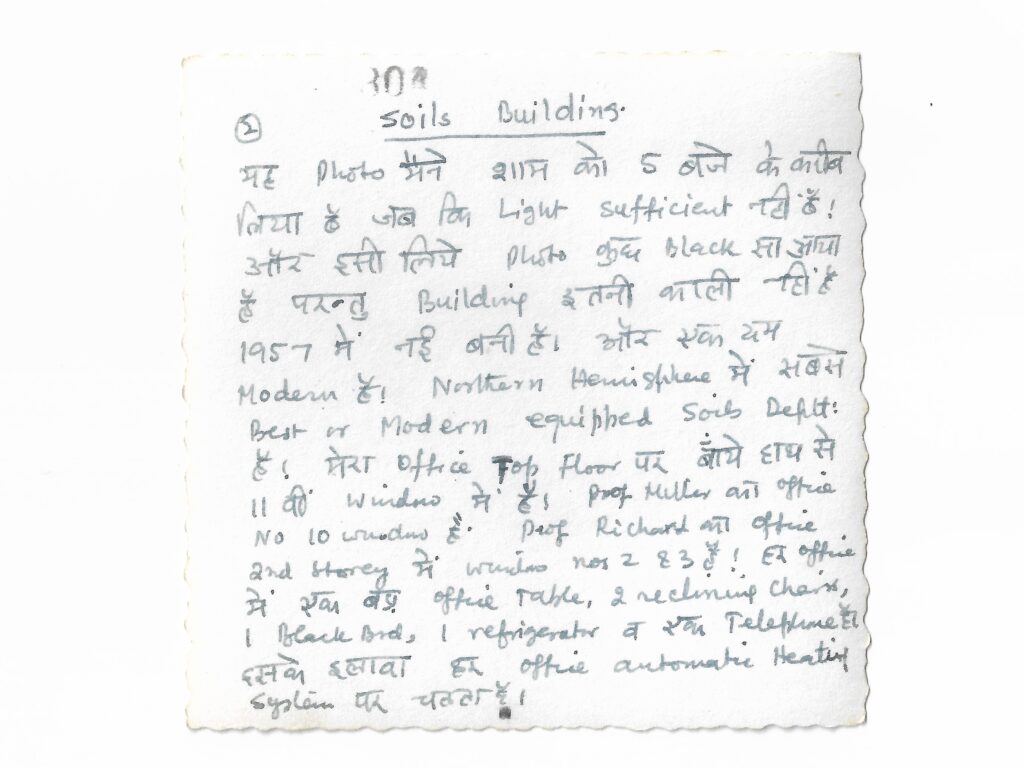 304
② Soils Building.
यह Photo मैंने शाम को 5 बजे के करीब
लिया है जब कि Light sufficient नहीं है!
और इसी लिये Photo कुछ Black सा आया
है परन्तु Building इतनी काली नहीं है
1957 में नई बनी है। और एक दम
Modern है! Northern Hemisphere में सबसे
Best or Modern equipped Soils Deptt:
है! मेरा Office Top Floor पर बांये हाथ से
11 वीं window में है। Prof Miller का office
No 10 window है Prof Richard का office
2nd Storey में window nos 2 & 3 है! हर office
में एक बड़ा office Table, 2 reclining chairs,
1 Black Brd, 1 refrigerator व एक Telephone है।
इसके इलावा हर office automatic Heating
System पर चलता है।